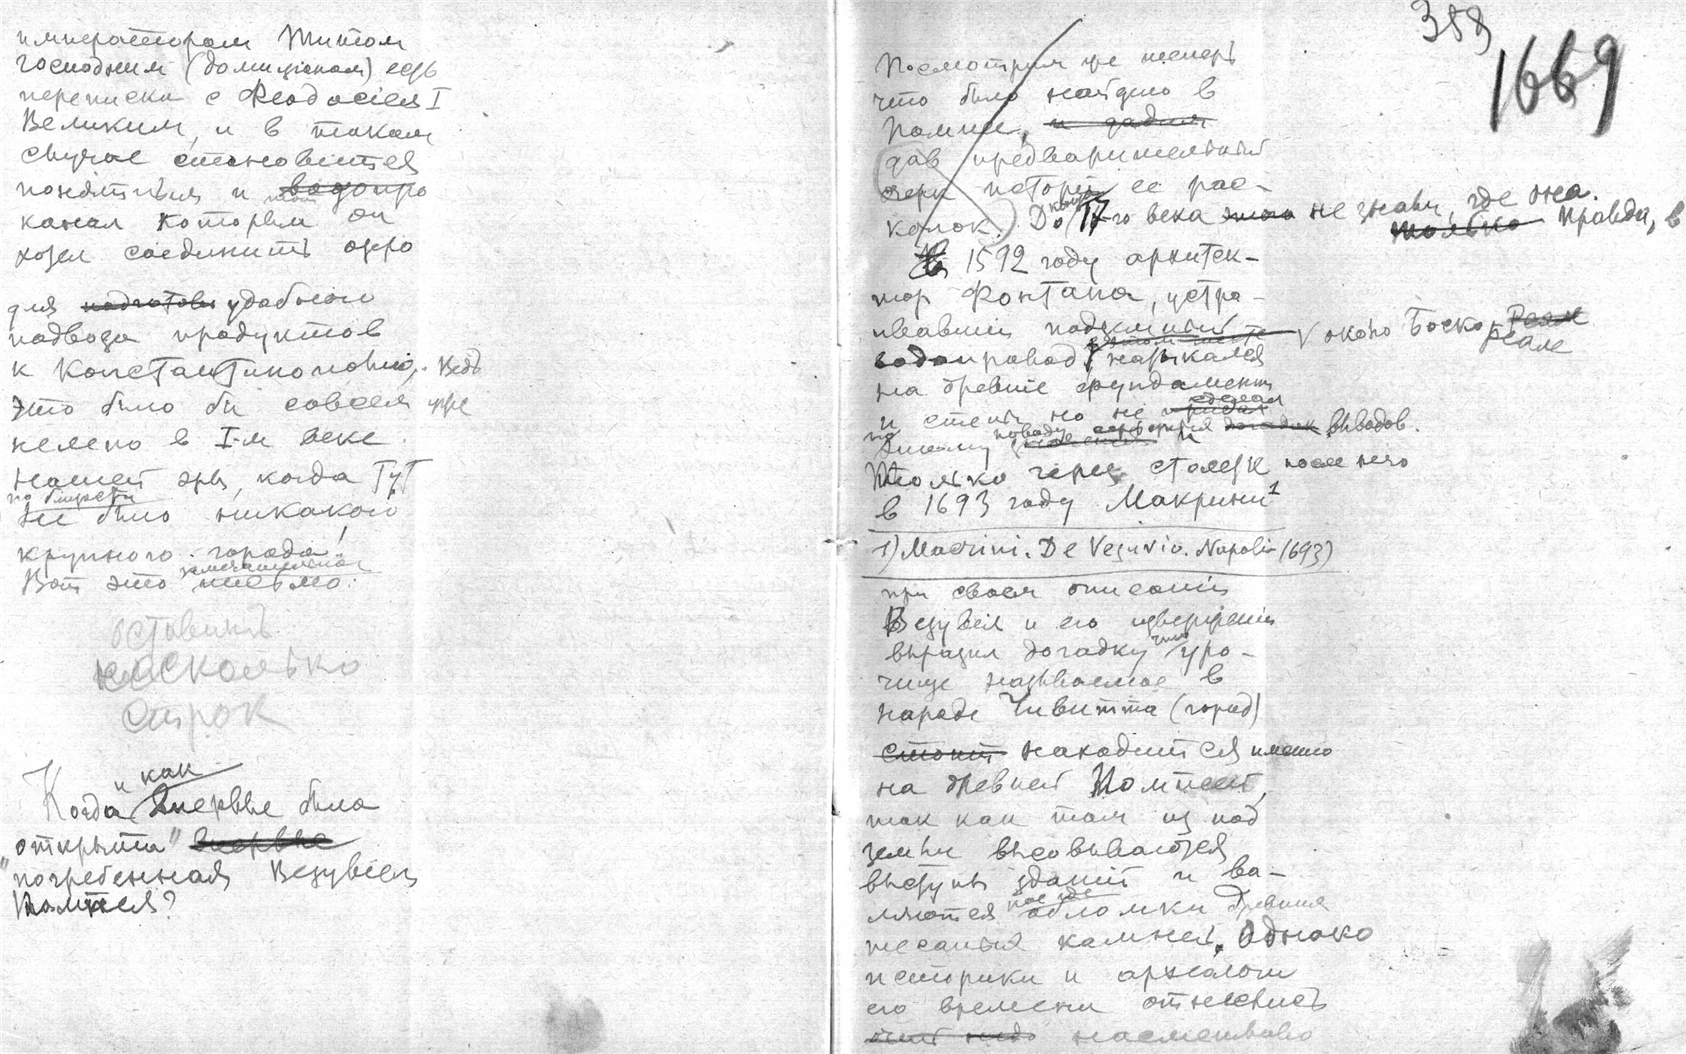 императором Титом
господним (домицианом) есть
переписки с Феодосіем I
Великим, и в таком
случае становится
понятным и водопро
канал которым он
хотел соединить озеро
для удобного
подвода продуктов
к Константинополю. Ведь
это было бы совсем уже
нелепо в I-м веке
нашей эры, когда тут
по близости
не было никакого
крупного города!
замечательное
Вот это письмо:
оставить
несколько
строк
и как
Когда впервые была
открыта" впервые
"погребенная Везувіем
Помпея?
388
1669
Посмотрим же теперь
что было найдено в
Помпее,
дав предварительный
очерк исторіи ее рас-
копок. До 17-го века не знали, где она.
только Правда, в
В 1592 году архитек-
тор Фонтана, устра-
ивавший подземный около Боско Реале
водопровод, натыкался
на древние фундаменты
и стены но не сделал
по этому поводу выводов.
Только через столетие после него
в 1693 году Макрини1
1) Macrini. De Vezuvio. Napoli (1693)
при своем описаніи
Везувія и его изверженій
высказал догадку что уро-
чище называемое в
народе Чивитта (город)
стоит находится именно
на древней Помпее,
так как там из под
земли высовываются
выступы зданий и ва-
ляются кое где обломки древних
тесаных камней. Однако
историки и археологи
его времени отнеслись
насмешливо